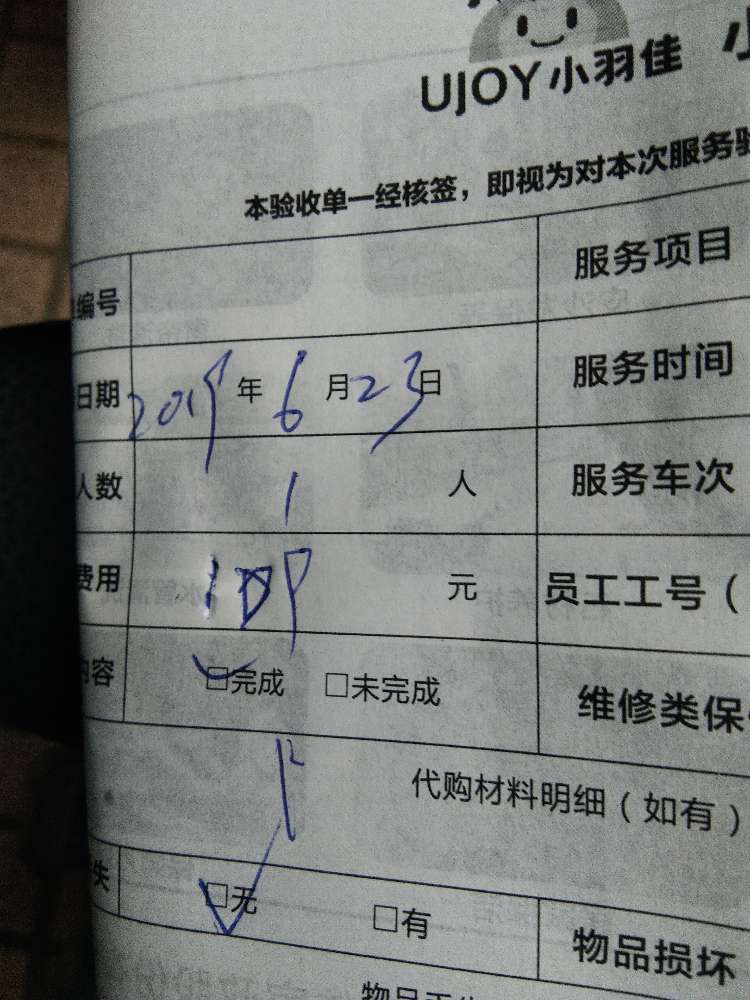 UJOY小羽佳
本验收单一经核签，即视为对本次服务
编号 服务项目
日期 2019年6月23日 服务时间
人数 1 人 服务车次
费用 109 元 员工工号（
内容 □完成 □未完成 维修类保
代购材料明细（如有）
失 □无 □有 物品损坏